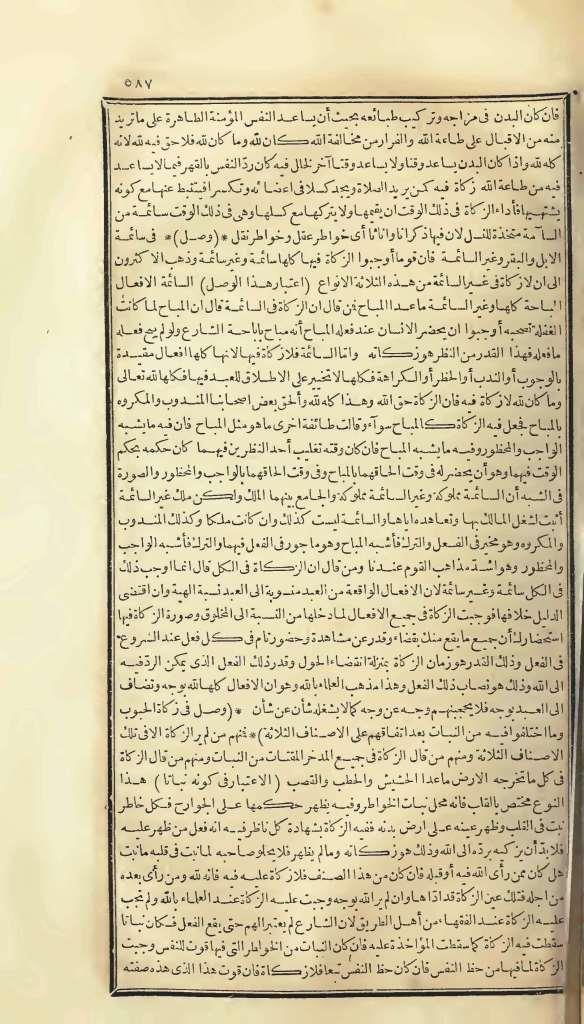 ٥٨٧
فان كان البدن فى مزاجه وتركيب طبائعه بحيث أن يساعد النفس المؤمنة الطاهرة على ما تريد
منه من الاقبال على طاعة الله والفرار من مخالفة الله كان لله وما كان لله فلا حق فيه لله لانه
كله لله واذا كان البدن يساعد وقتا ولا يساعد وقتا آخر لخلل فيه كان ردّ النفس بالقهر فيما لا يساعد
فيه من طاعة الله زكاة فيه كمن يريد الصلاة ويجد كسلا فى اعضائه وتكسرا فيتثبط عنها مع كونه
يشتهيها فأداء الزكاة فى ذلك الوقت ان يقيمها ولا يتركها مع كسلها وهى فى ذلك الوقت سائمة من
السآمة متخذة للنسل لان فيها ذكرانا واناثا أى خواطر عقل وخواطر نفس * (وصل) * فى سائمة
الابل والبقر وغير السائمة فان قوما أوجبوا الزكاة فيها كلها سائمة وغير سائمة وذهب الاكثرون
الى ان لا زكاة فى غير السائمة من هذه الثلاثة الانواع (اعتبار هذا الوصل) السائمة الافعال
المباحة كلها وغير السائمة ما عدا المباح فمن قال ان الزكاة فى السائمة قال ان المباح لما كانت
الغفلة تصحبه أوجبوا ان يحضر الانسان عند فعله المباح أنه مباح باباحة الشارع ولو لم يبح فعله
ما فعله فهذا القدر من النظر هو زكاته وأما غير السائمة فلا زكاة فيها لانها كلها افعال مقيدة
بالوجوب أو الندب أو الحظر أو الكراهة فكلها لا تخيير على الاطلاق للعبد فيها فكلها لله تعالى
وما كان لله لا زكاة فيه فان الزكاة حق الله وهذا كله لله وألحق بعض اصحابنا المندوب والمكروه
بالمباح فجعل فيه الزكاة كالمباح سوآء وقالت طائفة اخرى ما هو مثل المباح فان فيه ما يشبه
الواجب والمحظور وفيه ما يشبه المباح فان كان وقته تغليب أحد النظرين فيهما كان حكمه بحكم
الوقت فيهما وهو أن يحضر له فى وقت الحاقهما بالمباح وفى وقت الحاقهما بالواجب والمحظور والصورة
فى الشبه أن السائمة مملوكة وغير السائمة مملوكة والجامع بينهما الملك ولكن ملك غير السائمة
أثبت لشغل المالك بها وتعاهده اياها والسائمة ليست كذلك وان كانت ملكا وكذلك المندوب
والمكروه وهو مخير فى الفعل والترك فأشبه المباح وهو مأجور فى الفعل فيهما والترك فأشبه الواجب
والمحظور وهو اسد مذاهب القوم عندنا ومن قال ان الزكاة فى الكل قال انما أوجب ذلك
فى الكل سائمة وغير سائمة لان الافعال الواقعة من العبد منسوبة الى العبد نسبة الهية وان اقتضى
الدليل خلافها فوجبت الزكاة فى جميع الافعال لما دخلها من النسبة الى المخلوق وصورة الزكاة فيها
استحضارك أن جميع ما يقع منك بقضاء وقدر عن مشاهدة وحضور تام فى كل فعل عند الشروع
فى الفعل وذلك القدر هو زمان الزكاة بمنزلة انقضاء الحول وقدر ذلك الفعل الذى يمكن الردّ فيه
الى الله وذلك هو نصاب ذلك الفعل وهذا مذهب العلماء بالله وهو ان الافعال كلها لله بوجه وتضاف
الى العبد بوجه فلا يحجبنهم وجه عن وجه كما لا يشغله شأن عن شأن * (وصل فى زكاة الحبوب
وما اختلفوا فيه من النبات بعد اتفاقهم على الاصناف الثلاثة) * فمنهم من لم ير الزكاة الا فى تلك
الاصناف الثلاثة ومنهم من قال الزكاة فى جميع المدخر المقتات من النبات ومنهم من قال الزكاة
فى كل ما تخرجه الارض ما عدا الحشيش والحطب والقصب (الاعتبار فى كونه نباتا) هذا
النوع مختص بالقلب فانه محل نبات الخواطر وفيه يظهر حكمها على الجوارح فكل خاطر
نبت فى القلب وظهر عينه على ارض بدنه ففيه الزكاة بشهادة كل ناظر فيه انه فعل من ظهر عليه
فلا بدّ أن يزكيه بردّه الى الله وذلك هو زكاته وما لم يظهر فلا يخلو صاحبه لما نبت فى قلبه ما نبت
هل كان ممن رأى الله فيه أو قبله فان كان من هذا الصنف فلا زكاة عليه فيه فانه لله ومن رأى بعده
من اجله فتلك عين الزكاة قد ادّاها وان لم ير الله بوجه وجبت عليه الزكاة عند العلماء بالله ولم تجب
عليه الزكاة عند الفقهاء من أهل الطريق لان الشارع لم يعتبر الهم حتى يقع الفعل فكان نباتا
سقطت فيه الزكاة كما سقطت المؤاخذة عليه فان كان النبات من الخواطر التى فيها قوت للنفس وجبت
الزكاة لما فيها من حظ النفس فان كان حظ النفس تبعا فلا زكاة فان قوت هذا الذى هذه صفته